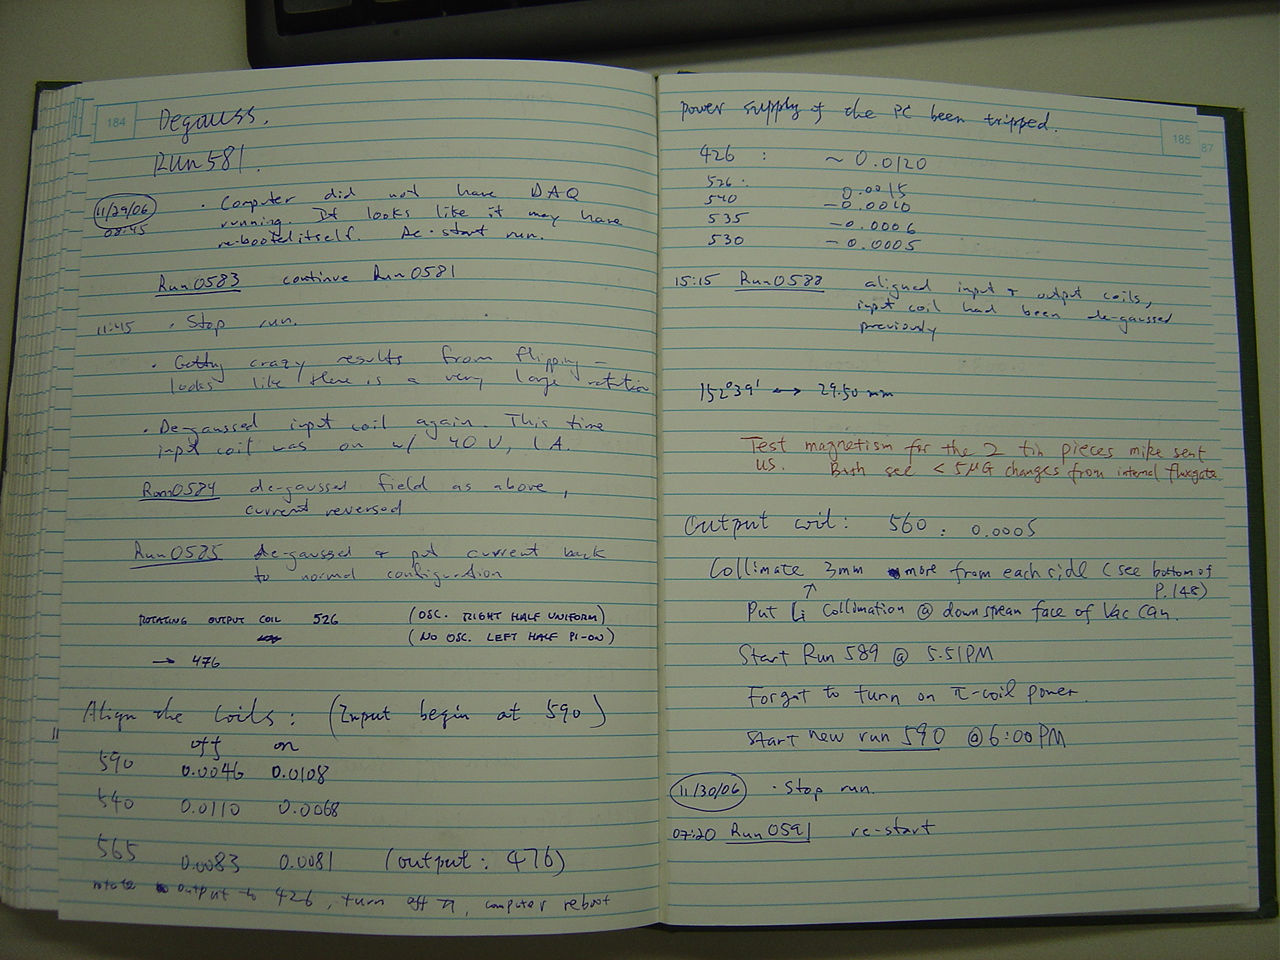 184
Degauss.
Run 581.
11/29/06
08:45
· Computer did not have DAQ
running. It looks like it may have
re-booted itself. Re-start run.
Run0583 continue Run0581
11:45 · Stop run.
· Getting crazy results from flipping –
looks like there is a very large rotation
· De-gaussed input coil again. This time
input coil was on w/ 40 V, 1 A.
Run0584 de-gaussed field as above,
current reversed
Run0585 de-gaussed + put current back
to normal configuration
ROTATING OUTPUT COIL 526 (OSC. RIGHT HALF UNIFORM)
(NO OSC. LEFT HALF PI-ON)
→ 476
Align the coils: (Input begin at 590)
off on
590 0.0046 0.0108
540 0.0110 0.0068
565 0.0083 0.0081 (output: 476)
rotate output to 426, turn off π, computer reboot
185
87
power supply of the PC been tripped.
426 : ~ 0.0120
526: 0.0015
540 -0.0010
535 -0.0006
530 -0.0005
15:15 Run0588 aligned input + output coils,
input coil had been de-gaussed
previously
152°39' ↔ 29.50 mm
Test magnetism for the 2 tin pieces mike sent
us. Both see < 5μG changes from internal fluxgate.
Output coil: 560: 0.0005
Collimate 3mm more from each side (see bottom of
P.148)
↑
Put Li collimation @ downstream face of Vac Can.
Start Run 589 @ 5:51PM
Forgot to turn on π-coil power.
Start new run 590 @ 6:00PM
11/30/06 · Stop run.
07:20 Run0591 re-start